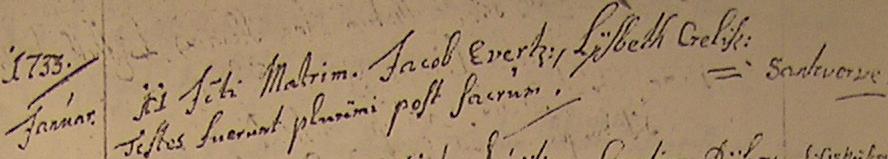 1733.
Januar.
11 Jcti Matrim. Jacob Evertz:, Lijsbeth Gelis:
Testes fuerunt plurimi post sacrum.
Santvorve